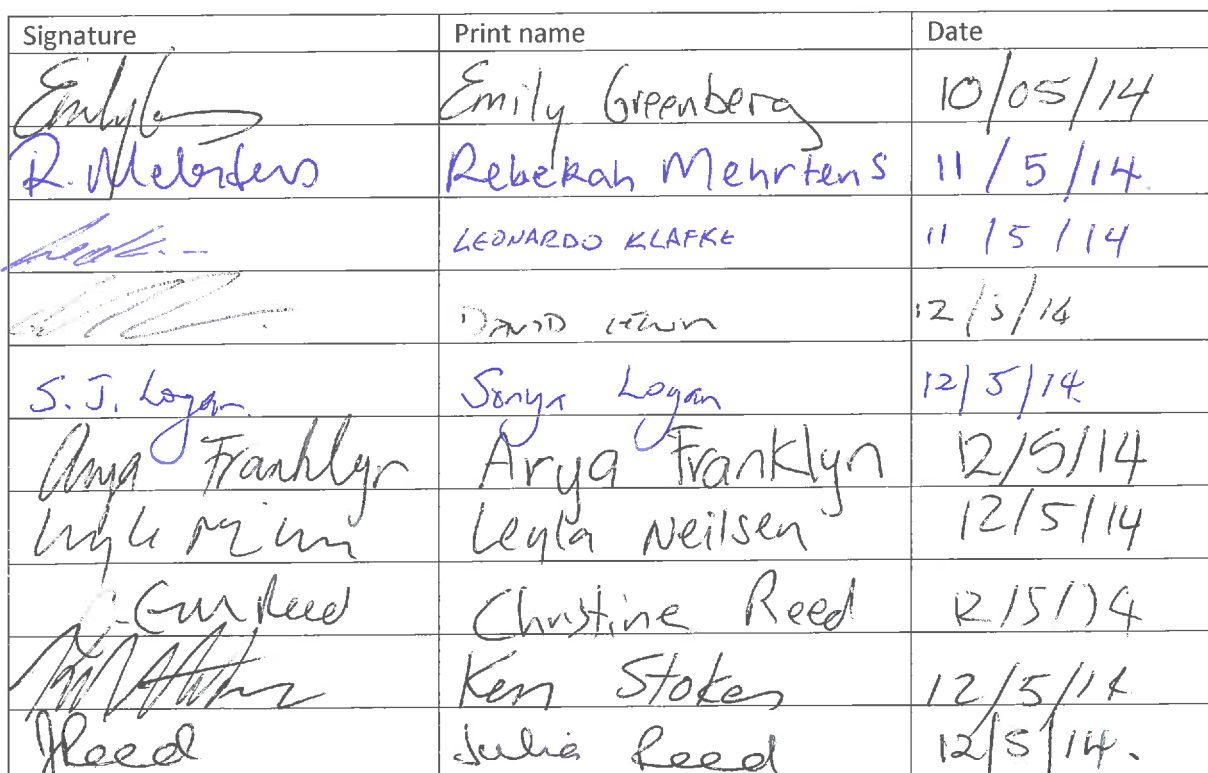 Signature Print name Date
Emily G Emily Greenberg 10/05/14
R. Mehrtens Rebekah Mehrtens 11/5/14
LEONARDO KLAFKE 11/5/14
DAVID 12/5/14
S. J. Logan Sonya Logan 12/5/14
Arya Franklyn Arya Franklyn 12/5/14
Leyla Neilsen 12/5/14
Reed Christine Reed 12/5/14
Ken Stokes 12/5/14
JReed Julie Reed 12/5/14.